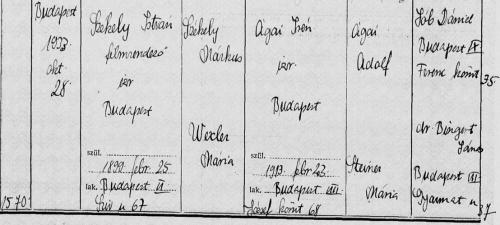 Budapest
1933
okt.
28.
1570
Székely István
filmrendező
izr
Budapest
szül.
1899 febr 25
lak. Budapest VI
u 67
Székely
Márkus
Wexler
Mária
Ágai Irén
izr.
Budapest
szül.
febr 23
lak. Budapest VIII
József körút 68
Ágai
Adolf
Steiner
Mária
Dániel
Budapest IX
Ferenc körút
35
dr
János
Budapest VII
u
37